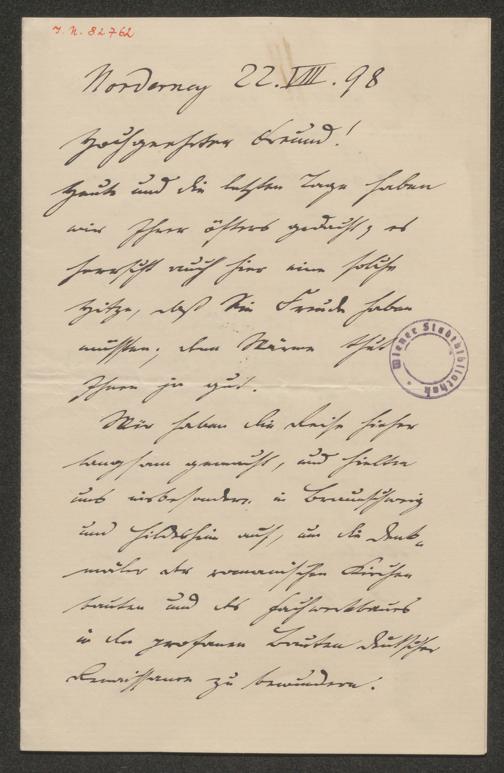 J. N. 82762
Norderney 22. VIII. 98
Hochgeehrter Freund!
Heute und die letzten Tage haben
wir Ihrer öfters gedacht; es
herrscht auch hier eine solche
Hitze, daß Sie Freude haben
müßten; denn Wärme thut
Ihnen ja gut.
Wir haben die Reise hieher
langsam gemacht, und hielten
uns insbesonders in Braunschweig
und Hildesheim auf, um die Denk-
mäler der romanischen Kirchen
bauten und des Fachwerkbaues
in den profanen Bauten deutscher
Renaissance zu bewundern.
Wiener Stadtbibliothek